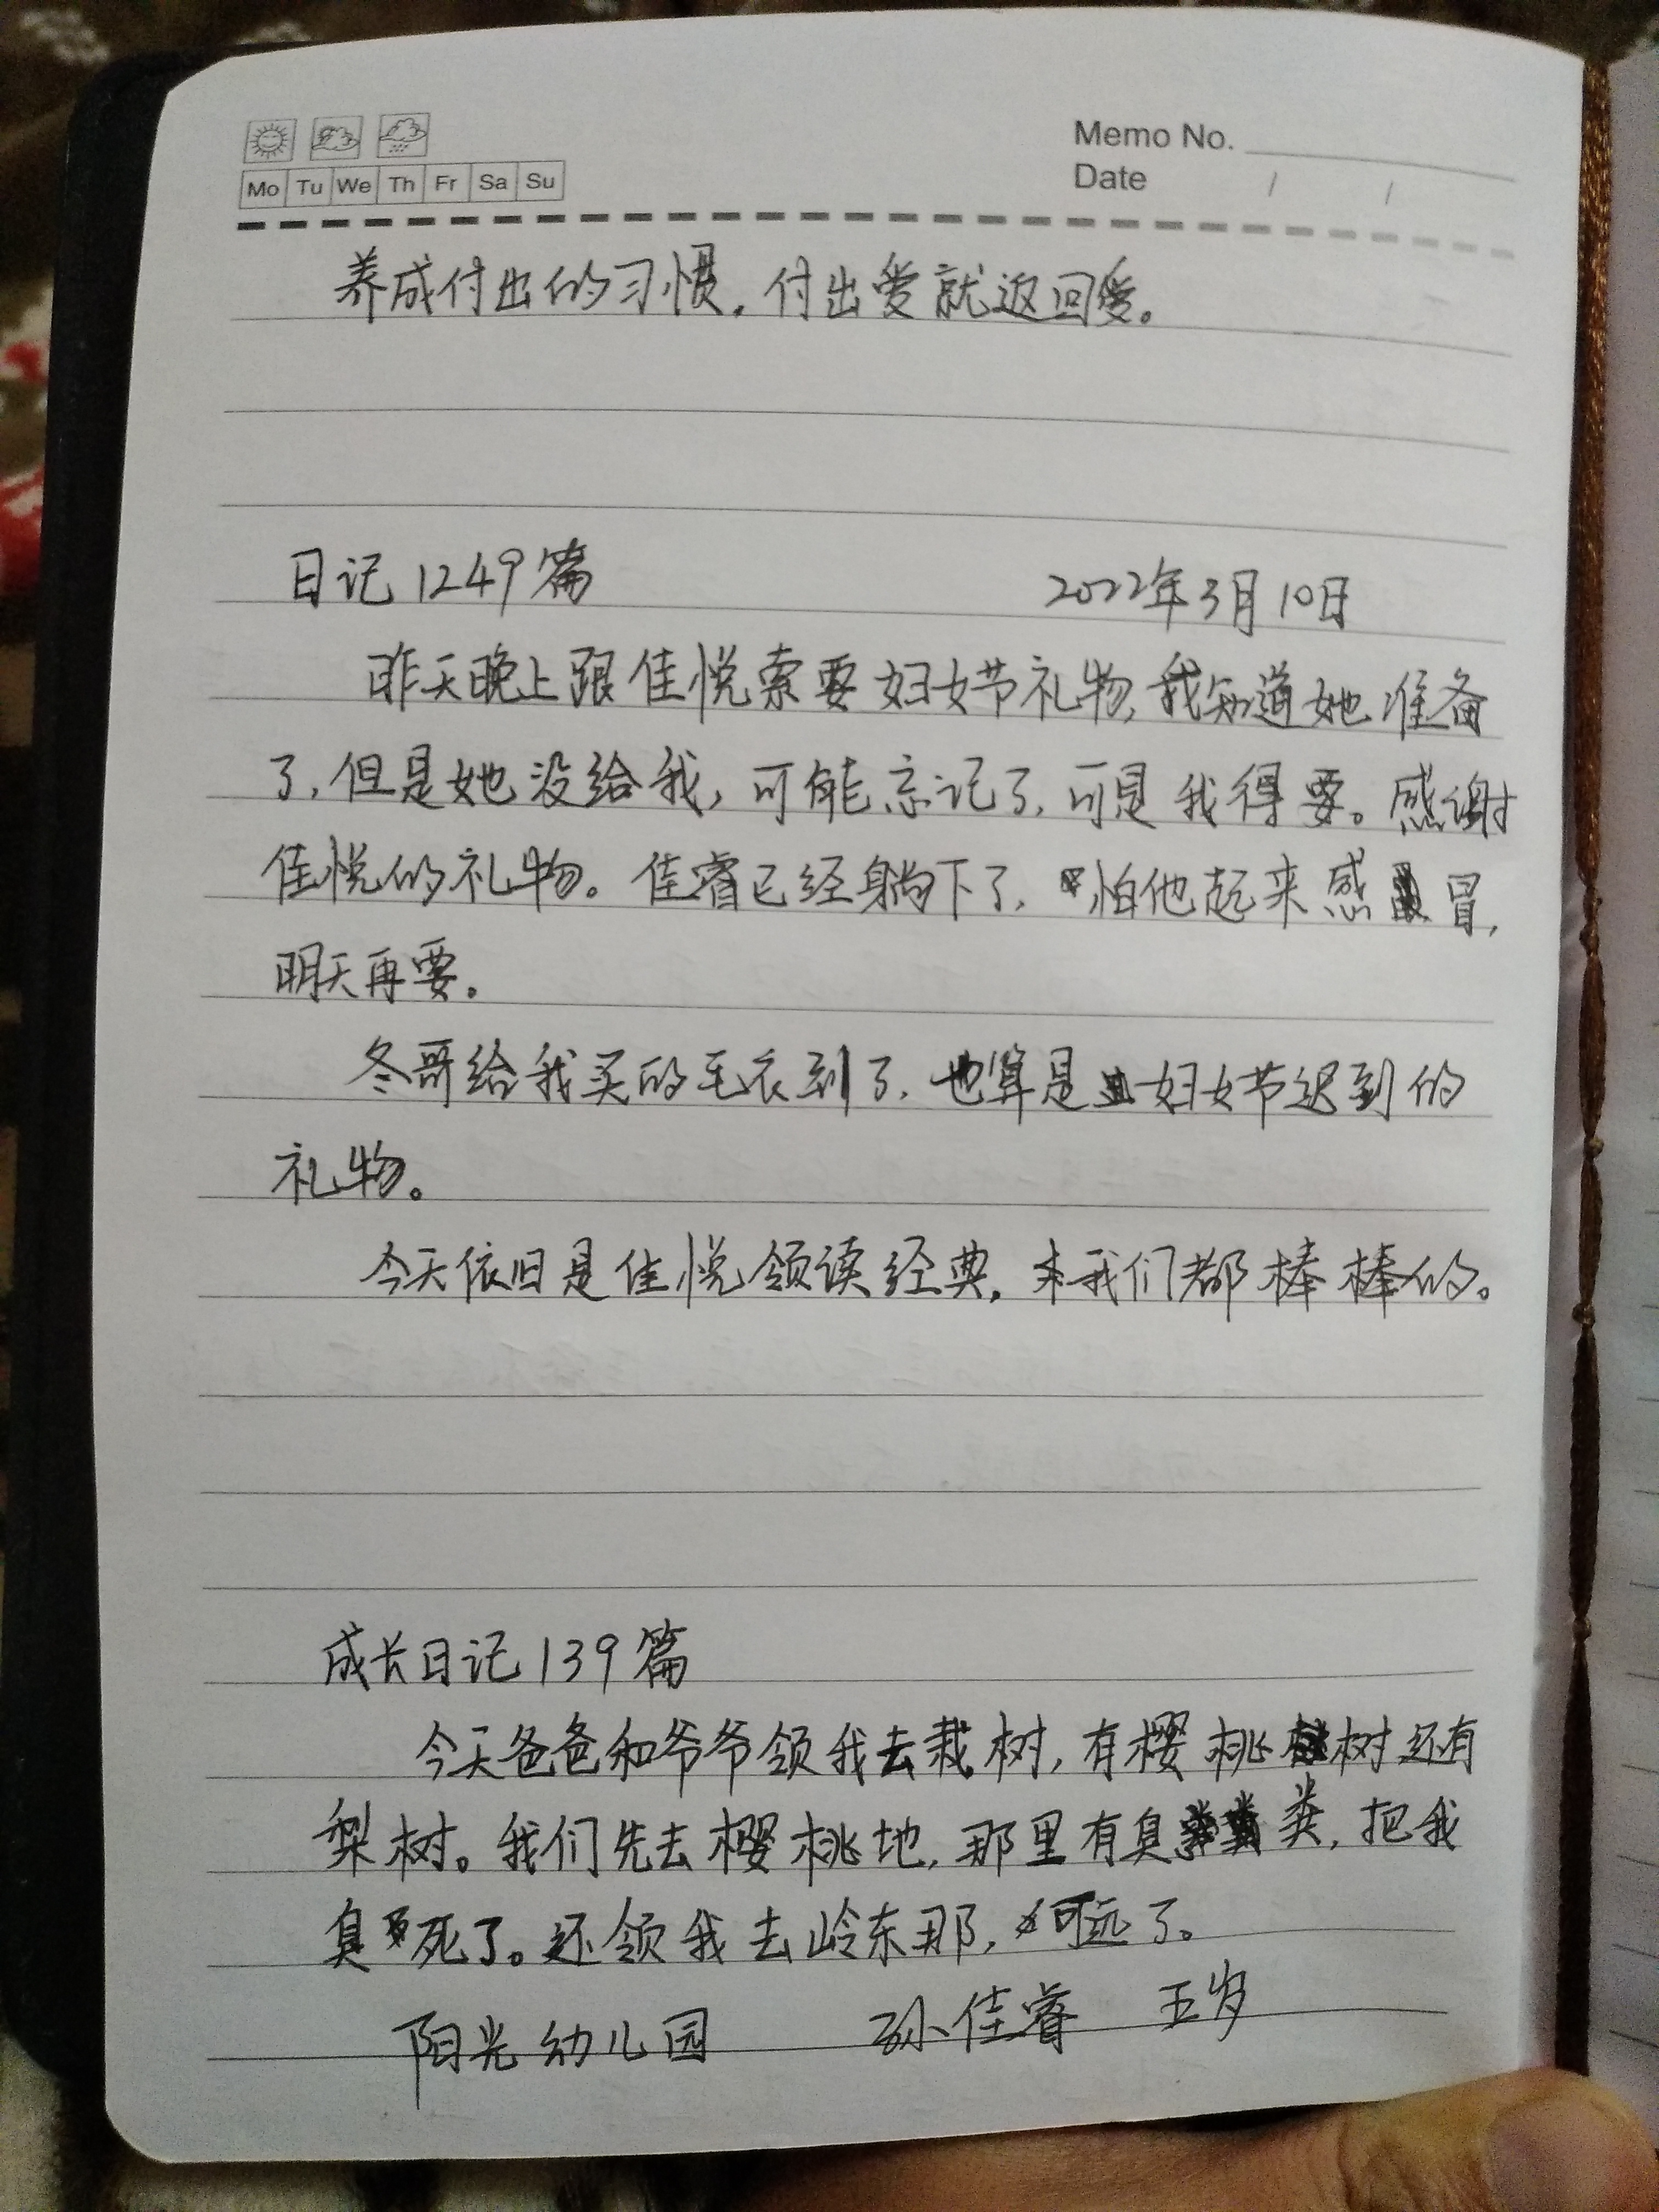 Memo No.
Mo Tu We Th Fr Sa Su
Date / /
养成付出的习惯，付出爱就返回爱。
日记1249篇 2022年3月10日
昨天晚上跟佳悦索要妇女节礼物，我知道她准备
了，但是她没给我，可能忘记了，可是我得要。感谢
佳悦的礼物。佳睿已经躺下了，怕他起来感冒，
明天再要。
冬哥给我买的毛衣到了，也算是妇女节迟到的
礼物。
今天依旧是佳悦领读经典，我们都棒棒的。
成长日记139篇
今天爸爸和爷爷领我去栽树，有樱桃树还有
梨树。我们先去樱桃地，那里有臭粪，把我
臭死了。还领我去岭东那，可远了。
阳光幼儿园 孙佳睿 五岁